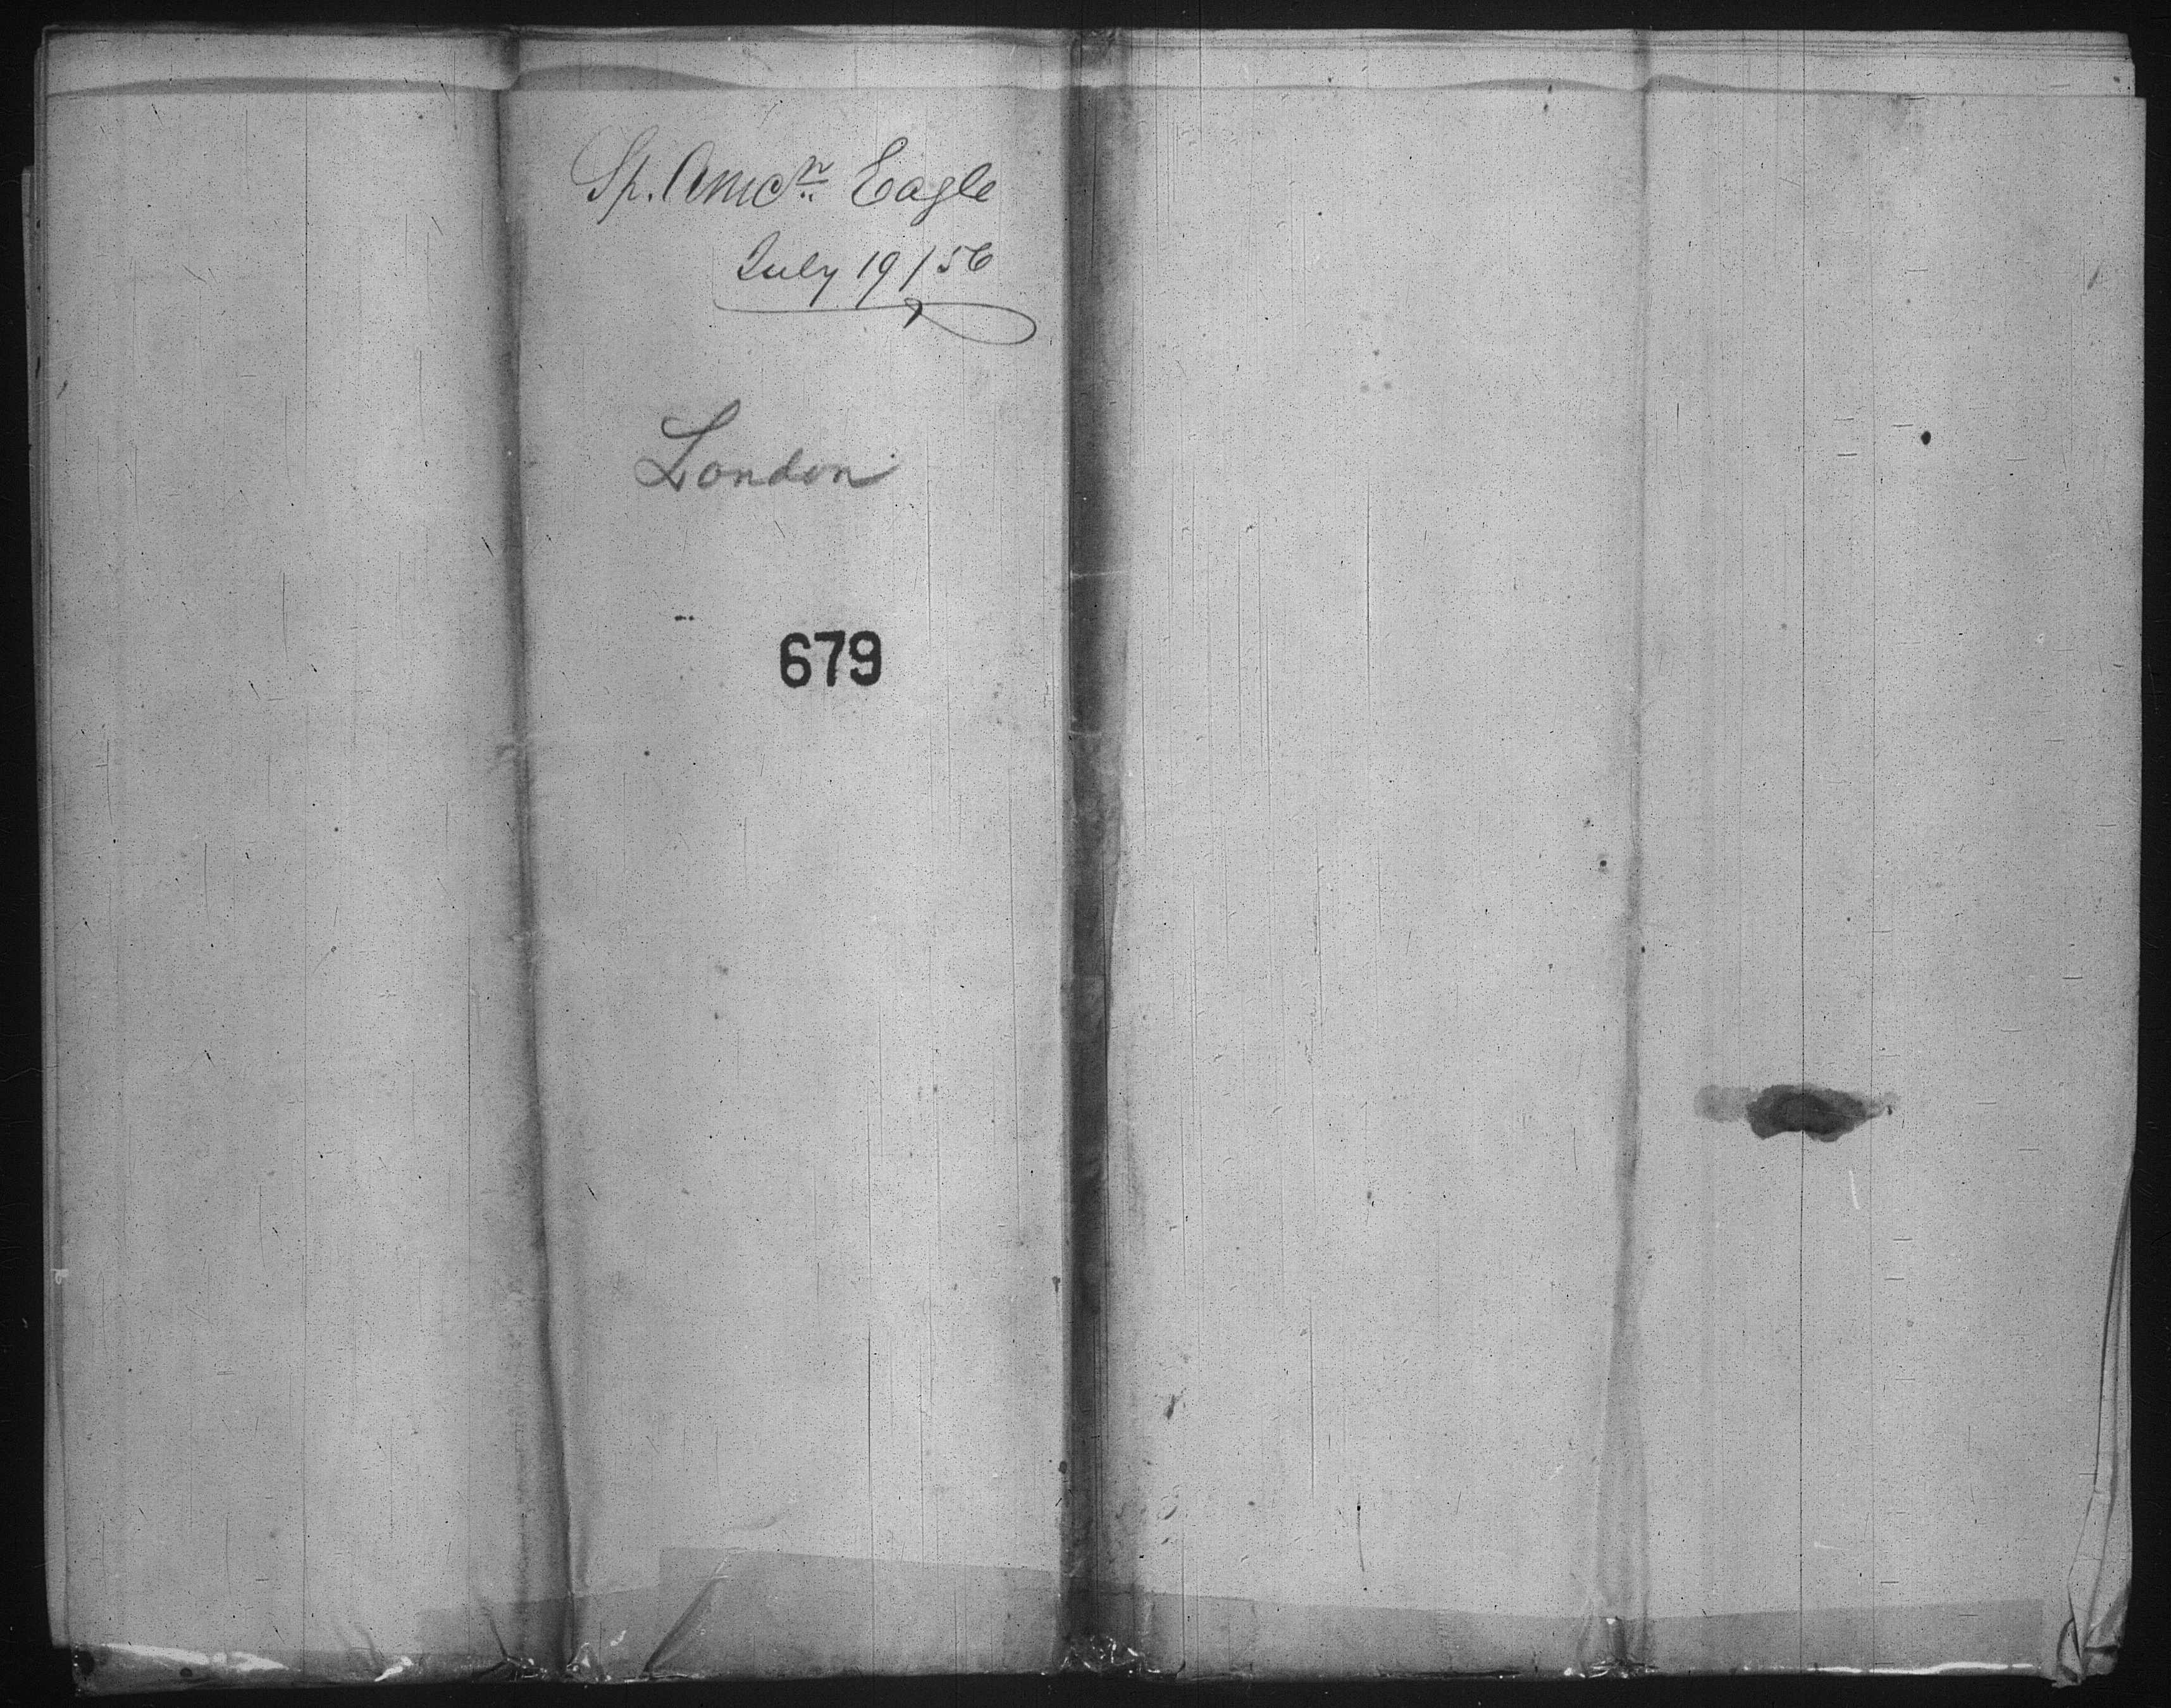 Sp. Amcn Eagle
July 19/56
London
679